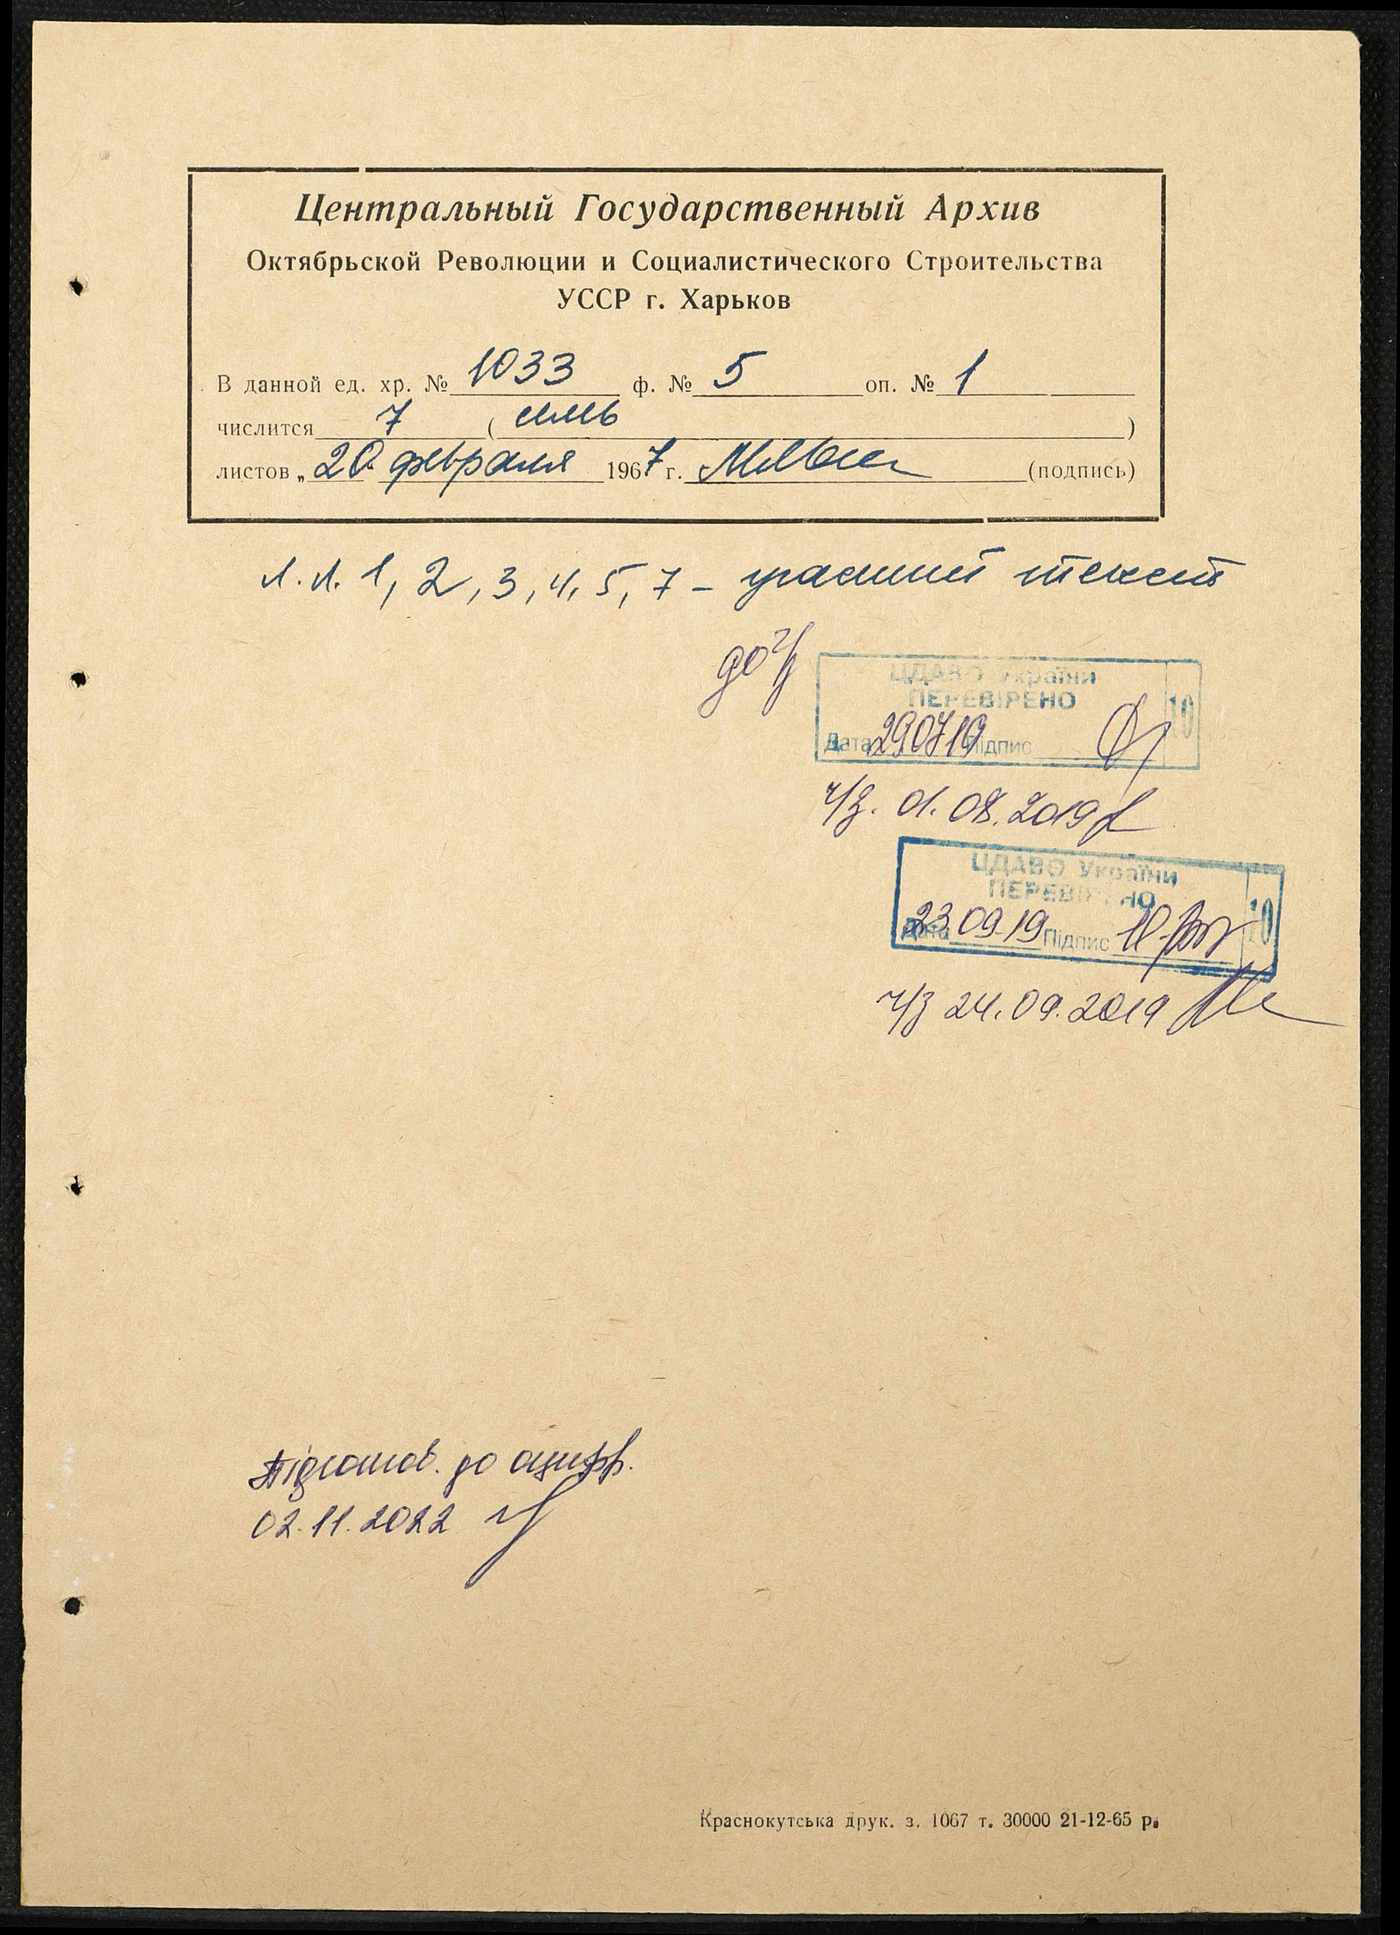 Центральный Государственный Архив
Октябрьской Революции и Социалистического Строительства
УССР г. Харьков
В данной ед. хр. № 1033 ф. № 5 оп. № 1
числится 7 ( семь )
листов „ 20 февраля 1967 г. (подпись)
л.л. 1, 2, 3, 4, 5, 7 – угасший текст
ЦДАВО України
ПЕРЕВІРЕНО
10
Дата 290719 Підпис
ч/з. 01.08.2019
ЦДАВО України
ПЕРЕВІРЕНО
10
Дата 23.09.19 Підпис
ч/з 24.09.2019
Підготов. до оцифр.
02.11.2022
Краснокутська друк. з. 1067 т. 30000 21-12-65 р.